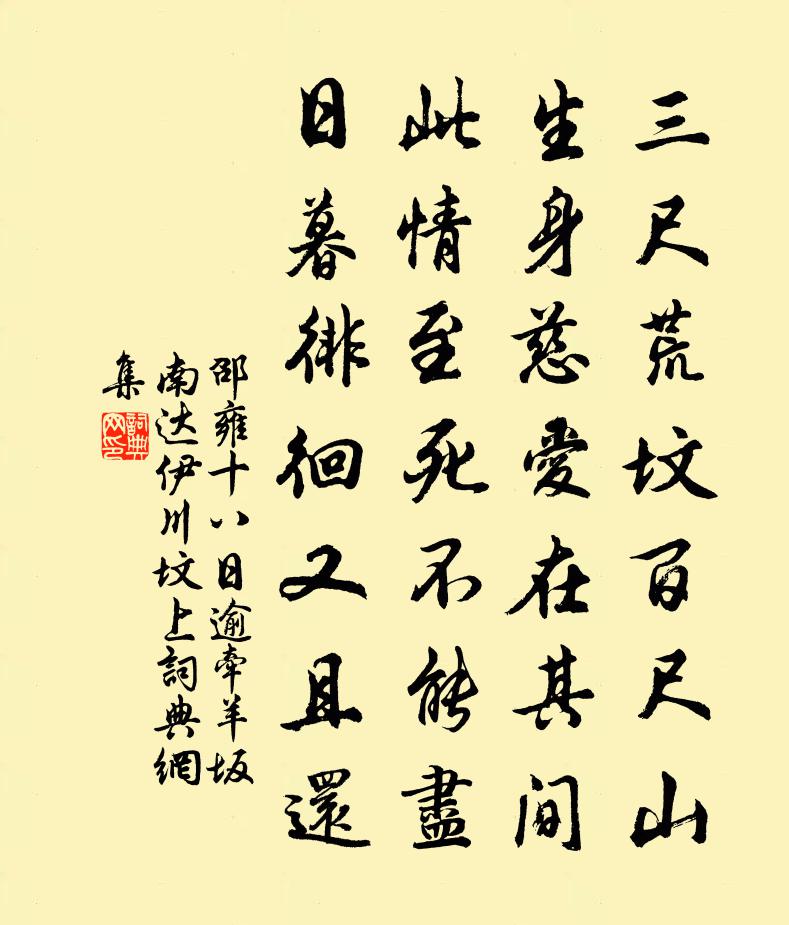 三尺荒坟百尺山
生身慈愛在其間
此情至死不能盡
日暮徘徊又且還
邵雍十八日逾牽羊坂
南达伊川坟上詞典網
集
詞典网印